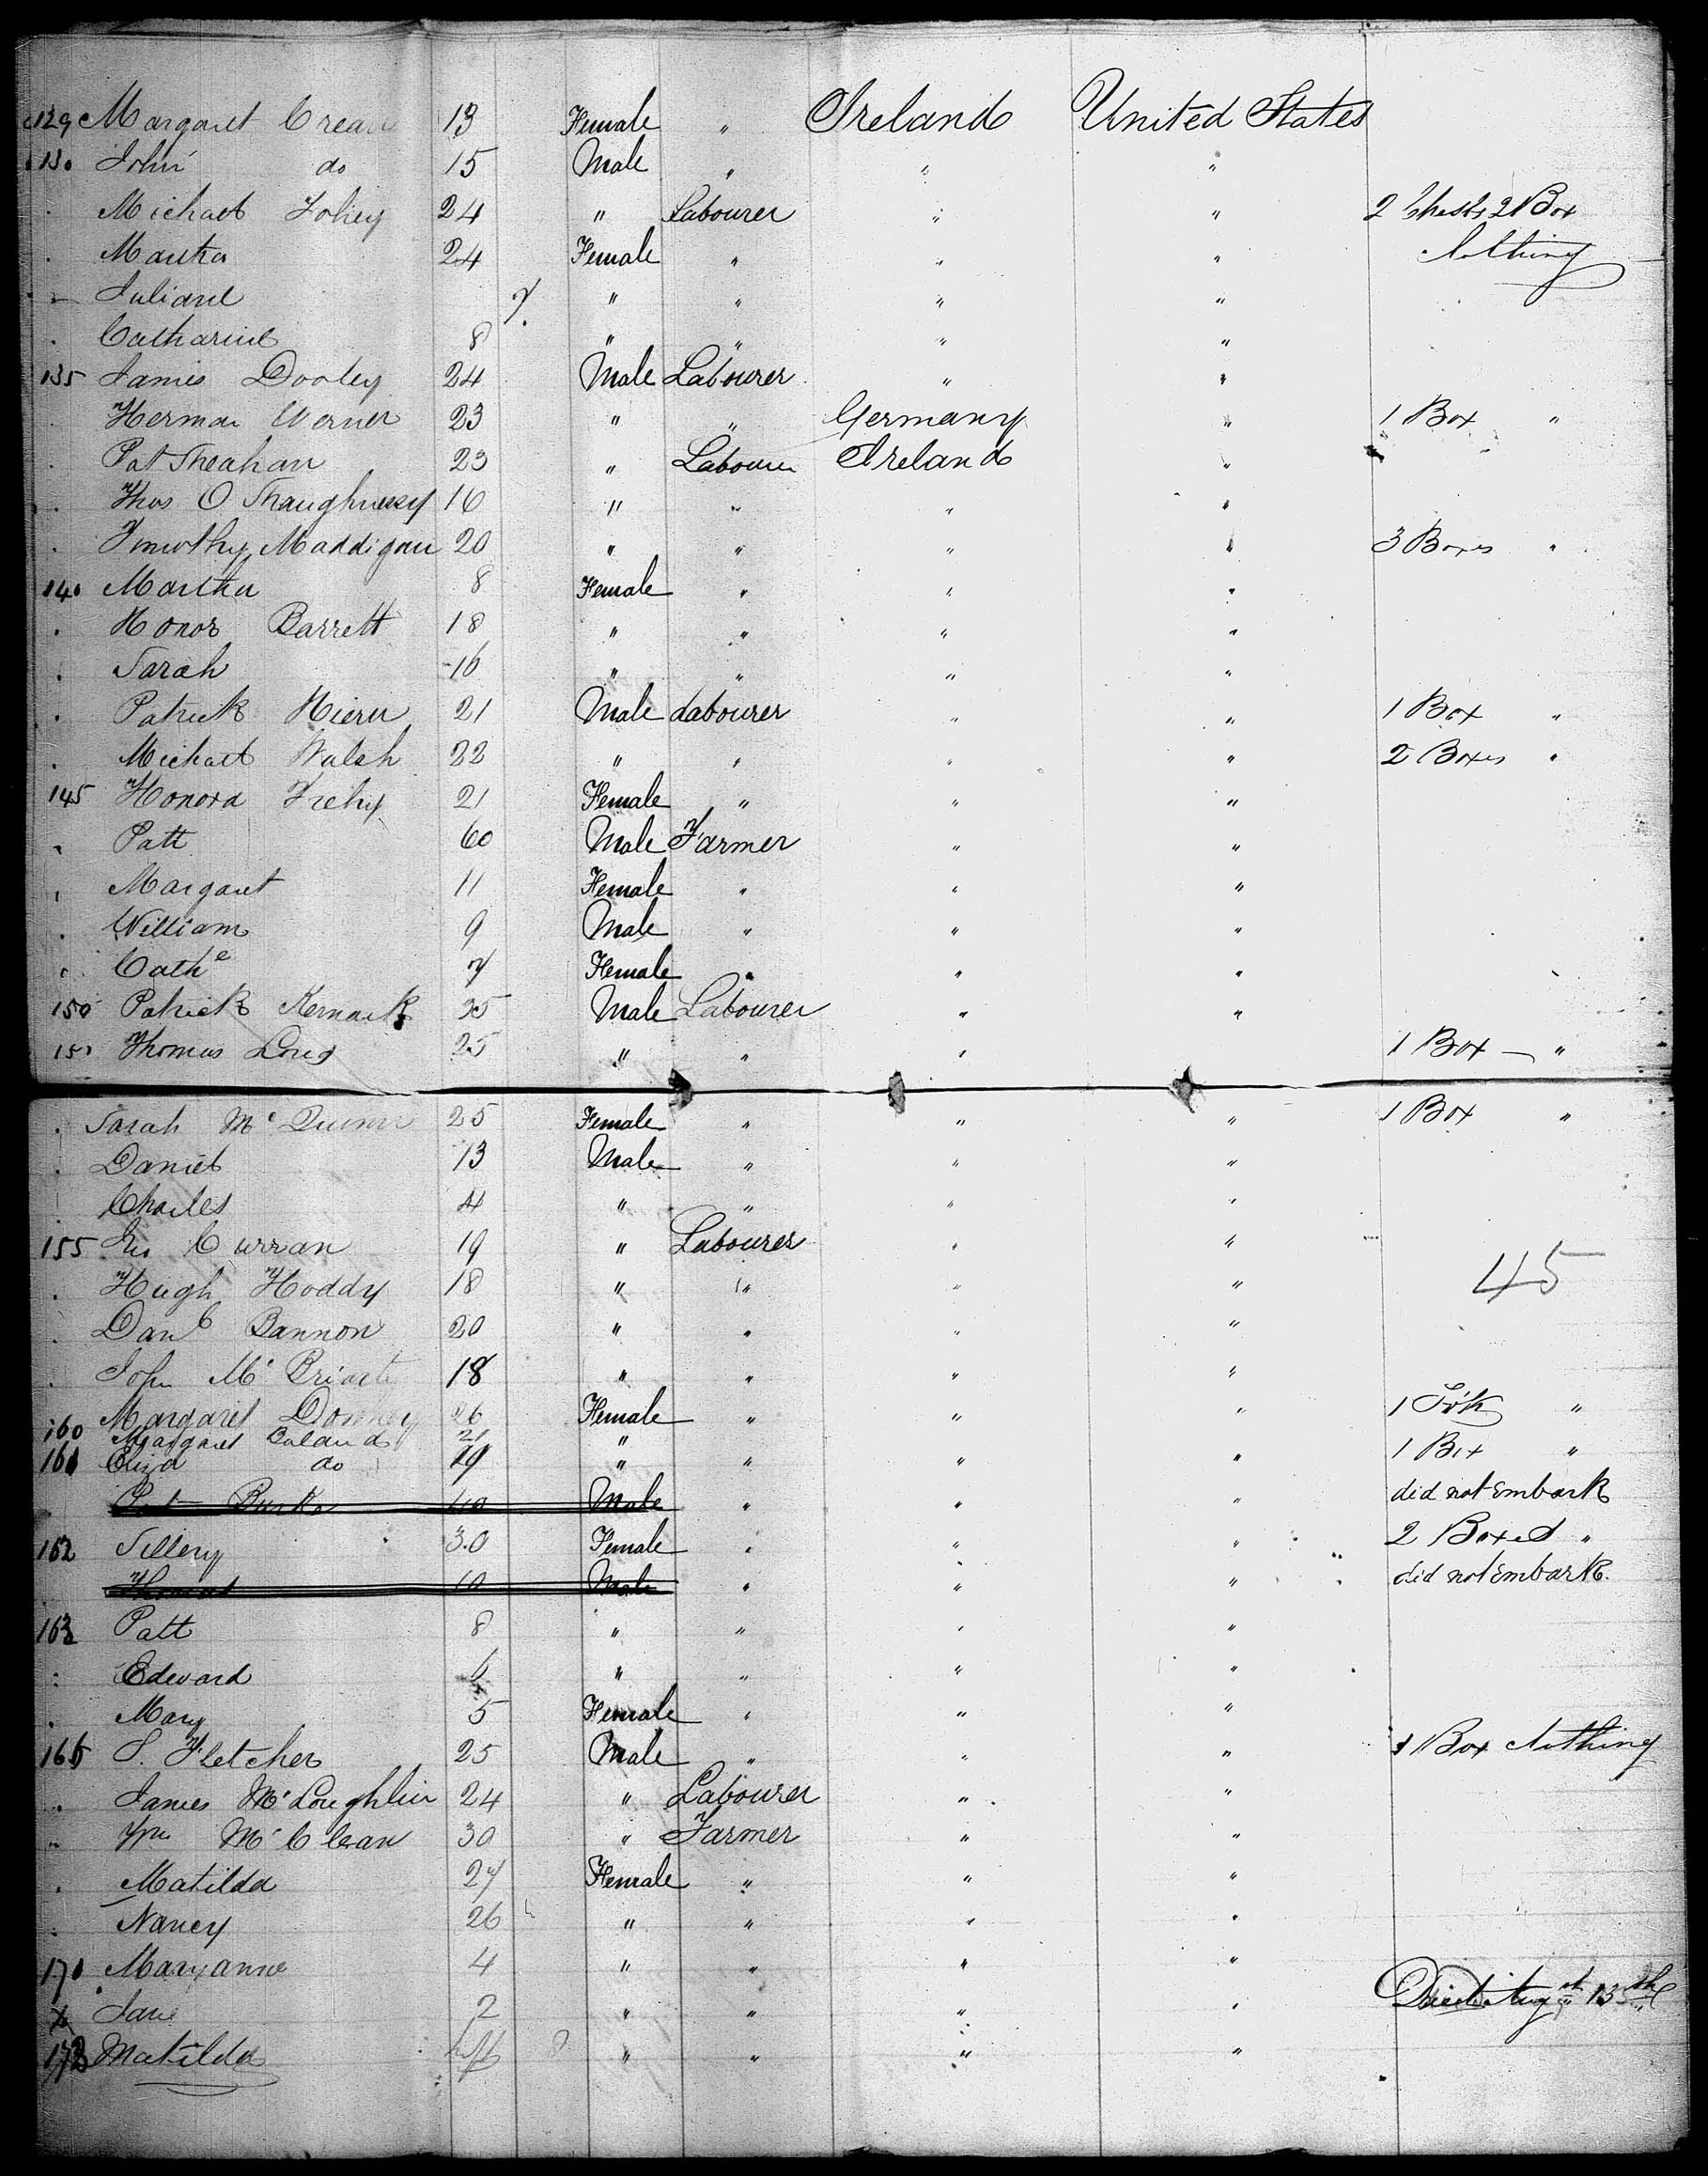 129 Margaret Crean 13 Female " Ireland United States
130 John do 15 Male " " "
. Michael Fohey 24 " Labourer " " 2 Chests 2 Box
. Martha 24 Female " " " Nothing
- Juliane 7 " " " "
. Catharine 8 " " " "
135 James Dooley 24 Male Labourer " "
. Herman Werner 23 " " Germany " 1 Box "
. Pat Sheahan 23 " Labourer Ireland "
. Thos O Shaughnessy 16 " " " "
. Timothy Maddigan 20 " " " " 3 Boxes "
140 Martha 8 Female " " "
. Honor Barrett 18 " " " "
. Sarah 16 " " " "
. Patrick Hieru 21 Male Labourer " " 1 Box "
. Michael Walsh 22 " " " " 2 Boxes "
145 Honora Frehy 21 Female " " "
. Patt 60 Male Farmer " "
. Margaret 11 Female " " "
. William 9 Male " " "
. Cathe 7 Female " " "
150 Patrick Kemark 25 Male Labourer " "
151 Thomas Long 25 " " " 1 Box — "
. Sarah Mc 25 Female " " " 1 Box "
. Daniel 13 Male " " "
. Charles 4 " " " "
155 Jno Curran 19 " Labourer " "
. Hugh Hoddy 18 " " " " 45
. Danl Bannon 20 " " " "
. John Mc 18 " " " "
160 Margaret 26 Female " " " 1 "
Margaret Boland 21 " 1 Box "
161 Eliza do 19 " " " "
Pat Burke 40 Male " " " did not Embark
162 30 Female " " " 2 Boxes "
Thomas 10 Male " " " did not Embark.
163 Patt 8 " " " "
. Edward 6 " " " "
. Mary 5 Female " " "
166 S. Fletcher 25 Male " " " 1 Box Nothing
. James McLoughlin 24 " Labourer " "
" Wm McClean 30 " Farmer " "
. Matilda 27 Female " " "
. Nancy 26 " " " "
170 Maryanne 4 " " " "
Jane 2 " " " " Died Augst 13th
172 Matilda inft " " " "